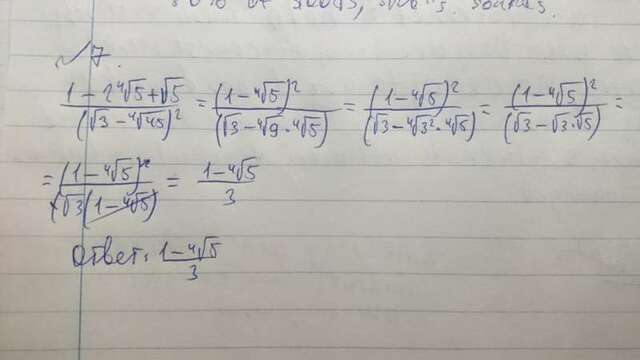 №7.
(1 - 2⁴√5 + √5)/(√3 - ⁴√45)² = (1 - ⁴√5)²/(√3 - ⁴√9 · ⁴√5) = (1 - ⁴√5)²/(√3 - ⁴√3² · ⁴√5) = (1 - ⁴√5)²/(√3 - √3 · √5) =
= (1 - ⁴√5)²/(√3(1 - ⁴√5) = (1 - ⁴√5)/3
Ответ: (1 - ⁴√5)/3